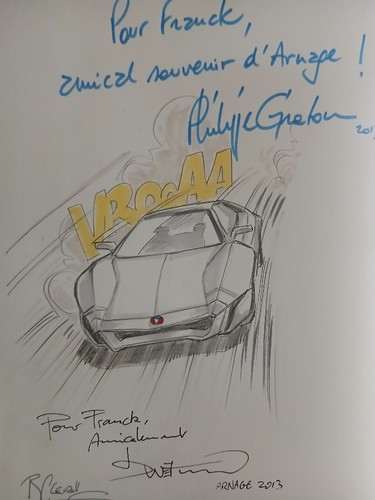 Pour Franck,
amical souvenir d'Arnage !
Philippe Graton
2013
VROOAA
Pour Franck,
Amicalement
ARNAGE 2013